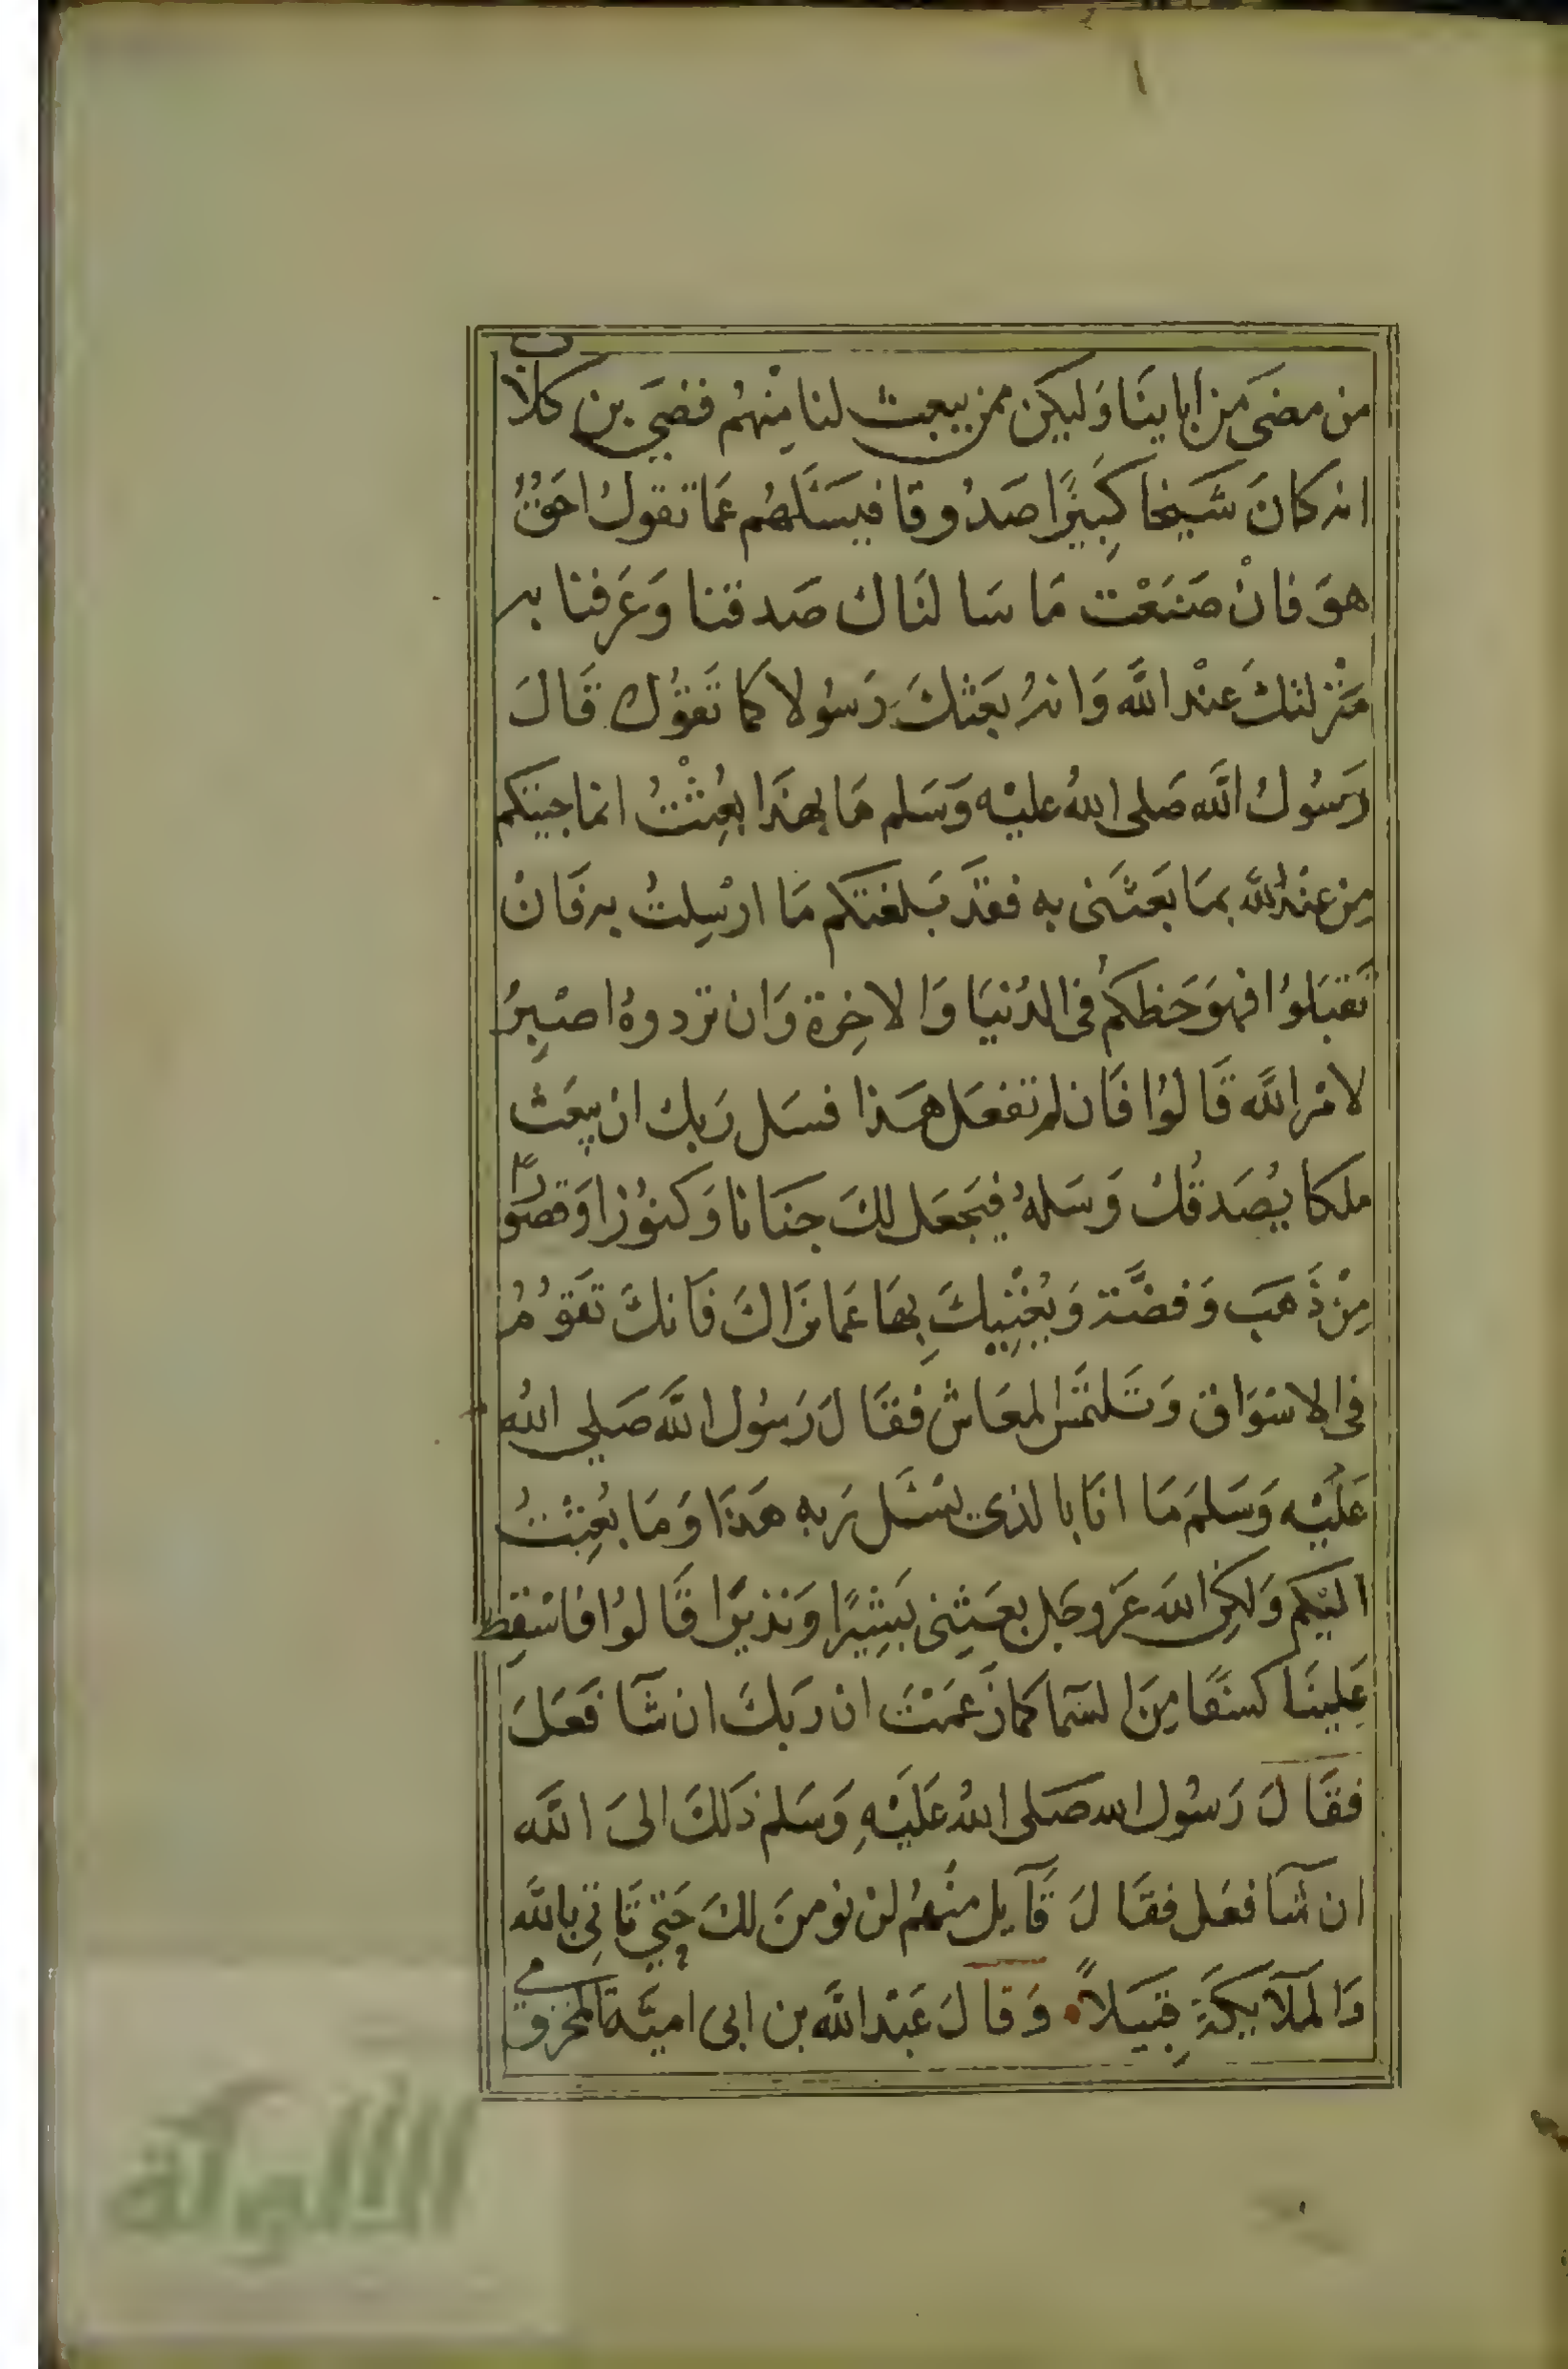 من مضىَ مَن اباينَا وَليكن ممن يبعث لنا مِنْهُم فضيَ بن كلاب
انه كانَ شَيخا كَبِيرًا صَدُوقا فيسَئَلهُم عَما تقول احَقُ
هوَ فانْ صَنَعْت مَا سَا لنَاك صَدقنا وَعَرفنا به
مَنْزلتك عنْد اللَّه وَانهُ بعَثكَ رَسُولا كما تَقوُل قَالَ
رَسُولُ اللَّه صَلى اللهُ عليْه وَسَلم مَا بهذَا بُعِثْتُ انما جيتكم
مِن عنْد اللَّه بمَا بَعَثَنى به فقدَ بَلغتكم مَا ارْسِلتُ به فَانْ
تَقبَلوُا فهوَ حَظكمُ فى الدُنيَا وَالاخِرة وَان تردوهُ اصْبِرُ
لامْر اللَّه قَالوُا فَان لم تفعَل هَذا فسَل رَبك ان يبعَث
ملكا يُصَدقُك وَسَلهُ فيَجعَل لكَ جنَانا وَكنوُزا وَقصورًا
مِنْ ذَهَب وَفضَّة وَيُغْنِيكَ بِهَا عَما نَرَاكَ فَانكَ تَقوُمُ
فى الاسْوَاق وَتَلتَمَس المعَاش فقَالَ رَسُول اللَّه صَلى اللهُ
عَليْه وَسَلمَ مَا انَا بالذى يسْئَل رَبه هَذَا وَمَا بُعِثْتُ
اليْكم وَلكِن اللَه عَزوجَل بعَثِنى بَشِيرًا وَنذيرًا قَالوُا فاسْقِط
عَلينَا كسفًا مِنَ السَما كما زَعَمْتَ ان رَبكَ ان شَا فَعَلَ
فقَالَ رَسُول الله صَلى اللهُ عَليْهِ وَسَلم ذَلكَ الىَ اللَّه
ان شَا فعَل فقَالَ قَآيل منْهُم لن نومنَ لكَ حَتي تَاتي باللَّه
وَالمَلآيكَةِ قبيَلاً وَقالَ عَبْد اللَّه بن ابى اميَّة المخزومي
الألوكة